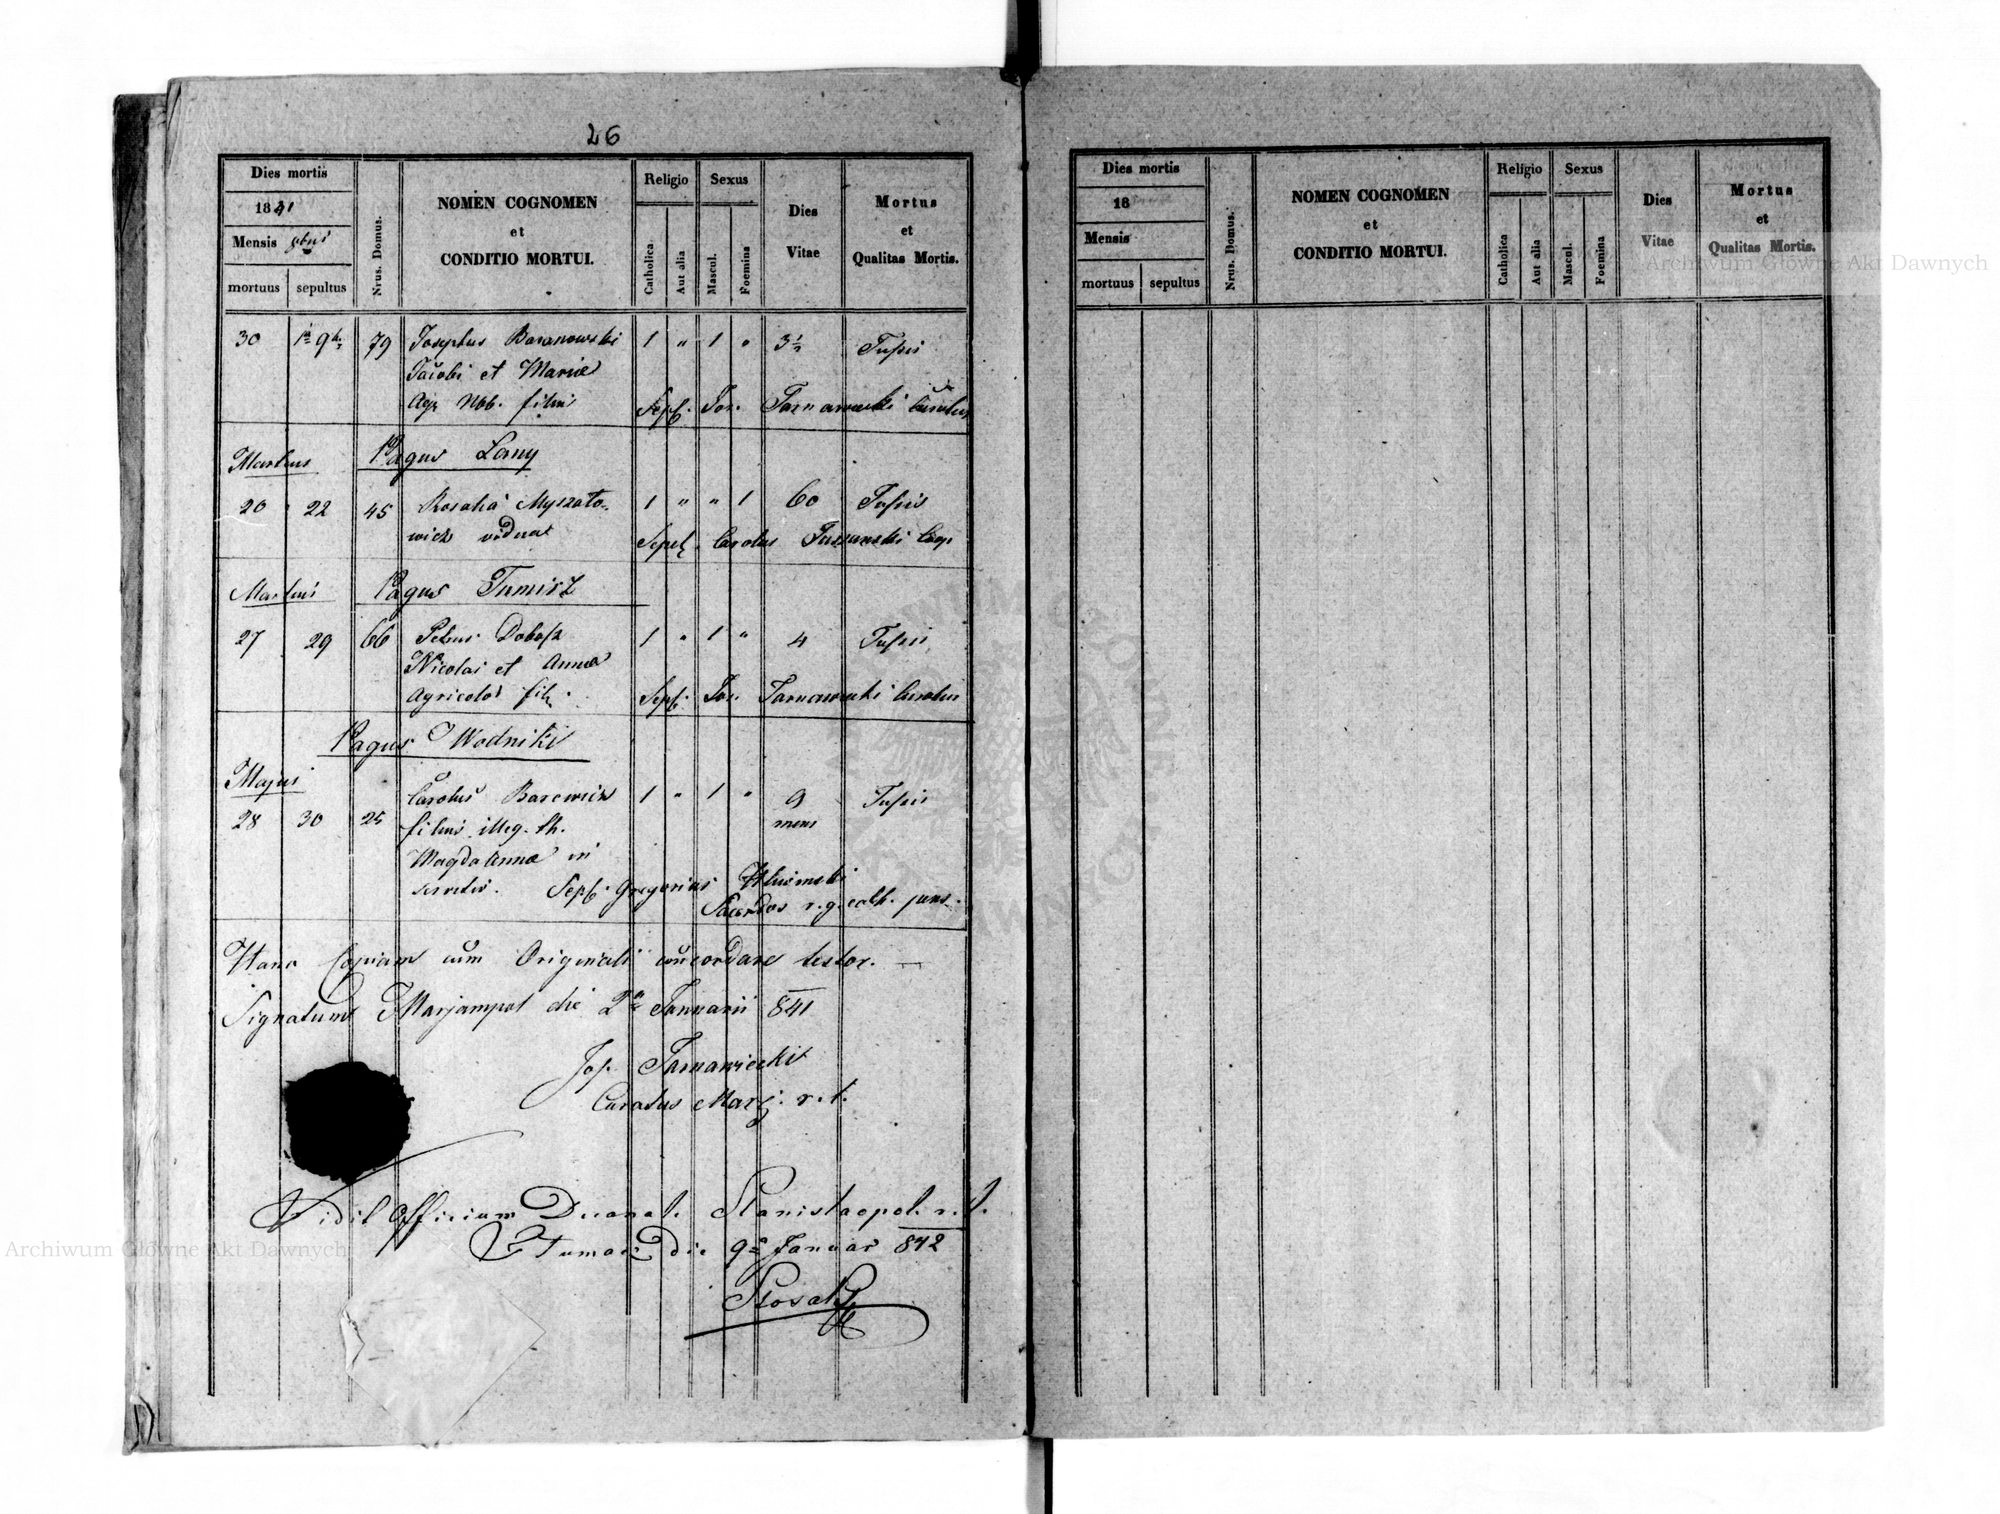 26
Dies mortis
1841
Mensis 8bris
mortuus sepultus
Nrus. Domus.
NOMEN COGNOMEN
et
CONDITIO MORTUI.
Religio
Catholica
Aut alia
Sexus
Mascul.
Foemina
Dies
Vitae
Mortus
et
Qualitas Mortis.
30 1a 9br 79 Josephus Baranowski 1 " 1 " 3½ Tussis
Jacobi et Mariæ
Agr. Nbb. filius Sepl. Jos. Tarnawiecki Curatus
Martius Pagus Lany
20 22 45 Rosalia Myszato- 1 " " 1 60 Tussis
wicz vidua Sepel. Carolus Coop
Martius Pagus Tumirz
27 29 66 Petrus Dobosz 1 " 1 " 4 Tussis
Nicolai et Annæ
Agricolæ fil. Sepl. Jos. Tarnawiecki Curatus
Pagus Wodniki
Majus
28 30 25 Carolus Barewicz 1 " 1 " 9 Tussis
filius illeg. th. mens
MagdaAnnæ in
servitio. Sepl. Gregorius
Sacerdos r. g. cath.
Hanc Copiam cum Originali concordare testor.
Signatum Marjampol die 2a Januarii 841
Jos. Tarnawiecki
Curatus Marj. r. l.
Vidit Officium Decanal. Stanislaopol. r. l.
Tumacz die 9a Januar 842
Dies mortis
18
Mensis
mortuus sepultus
Nrus. Domus.
NOMEN COGNOMEN
et
CONDITIO MORTUI.
Religio
Catholica
Aut alia
Sexus
Mascul.
Foemina
Dies
Vitae
Mortus
et
Qualitas Mortis.
Archiwum Główne Akt Dawnych
Archiwum Główne Akt Dawnych